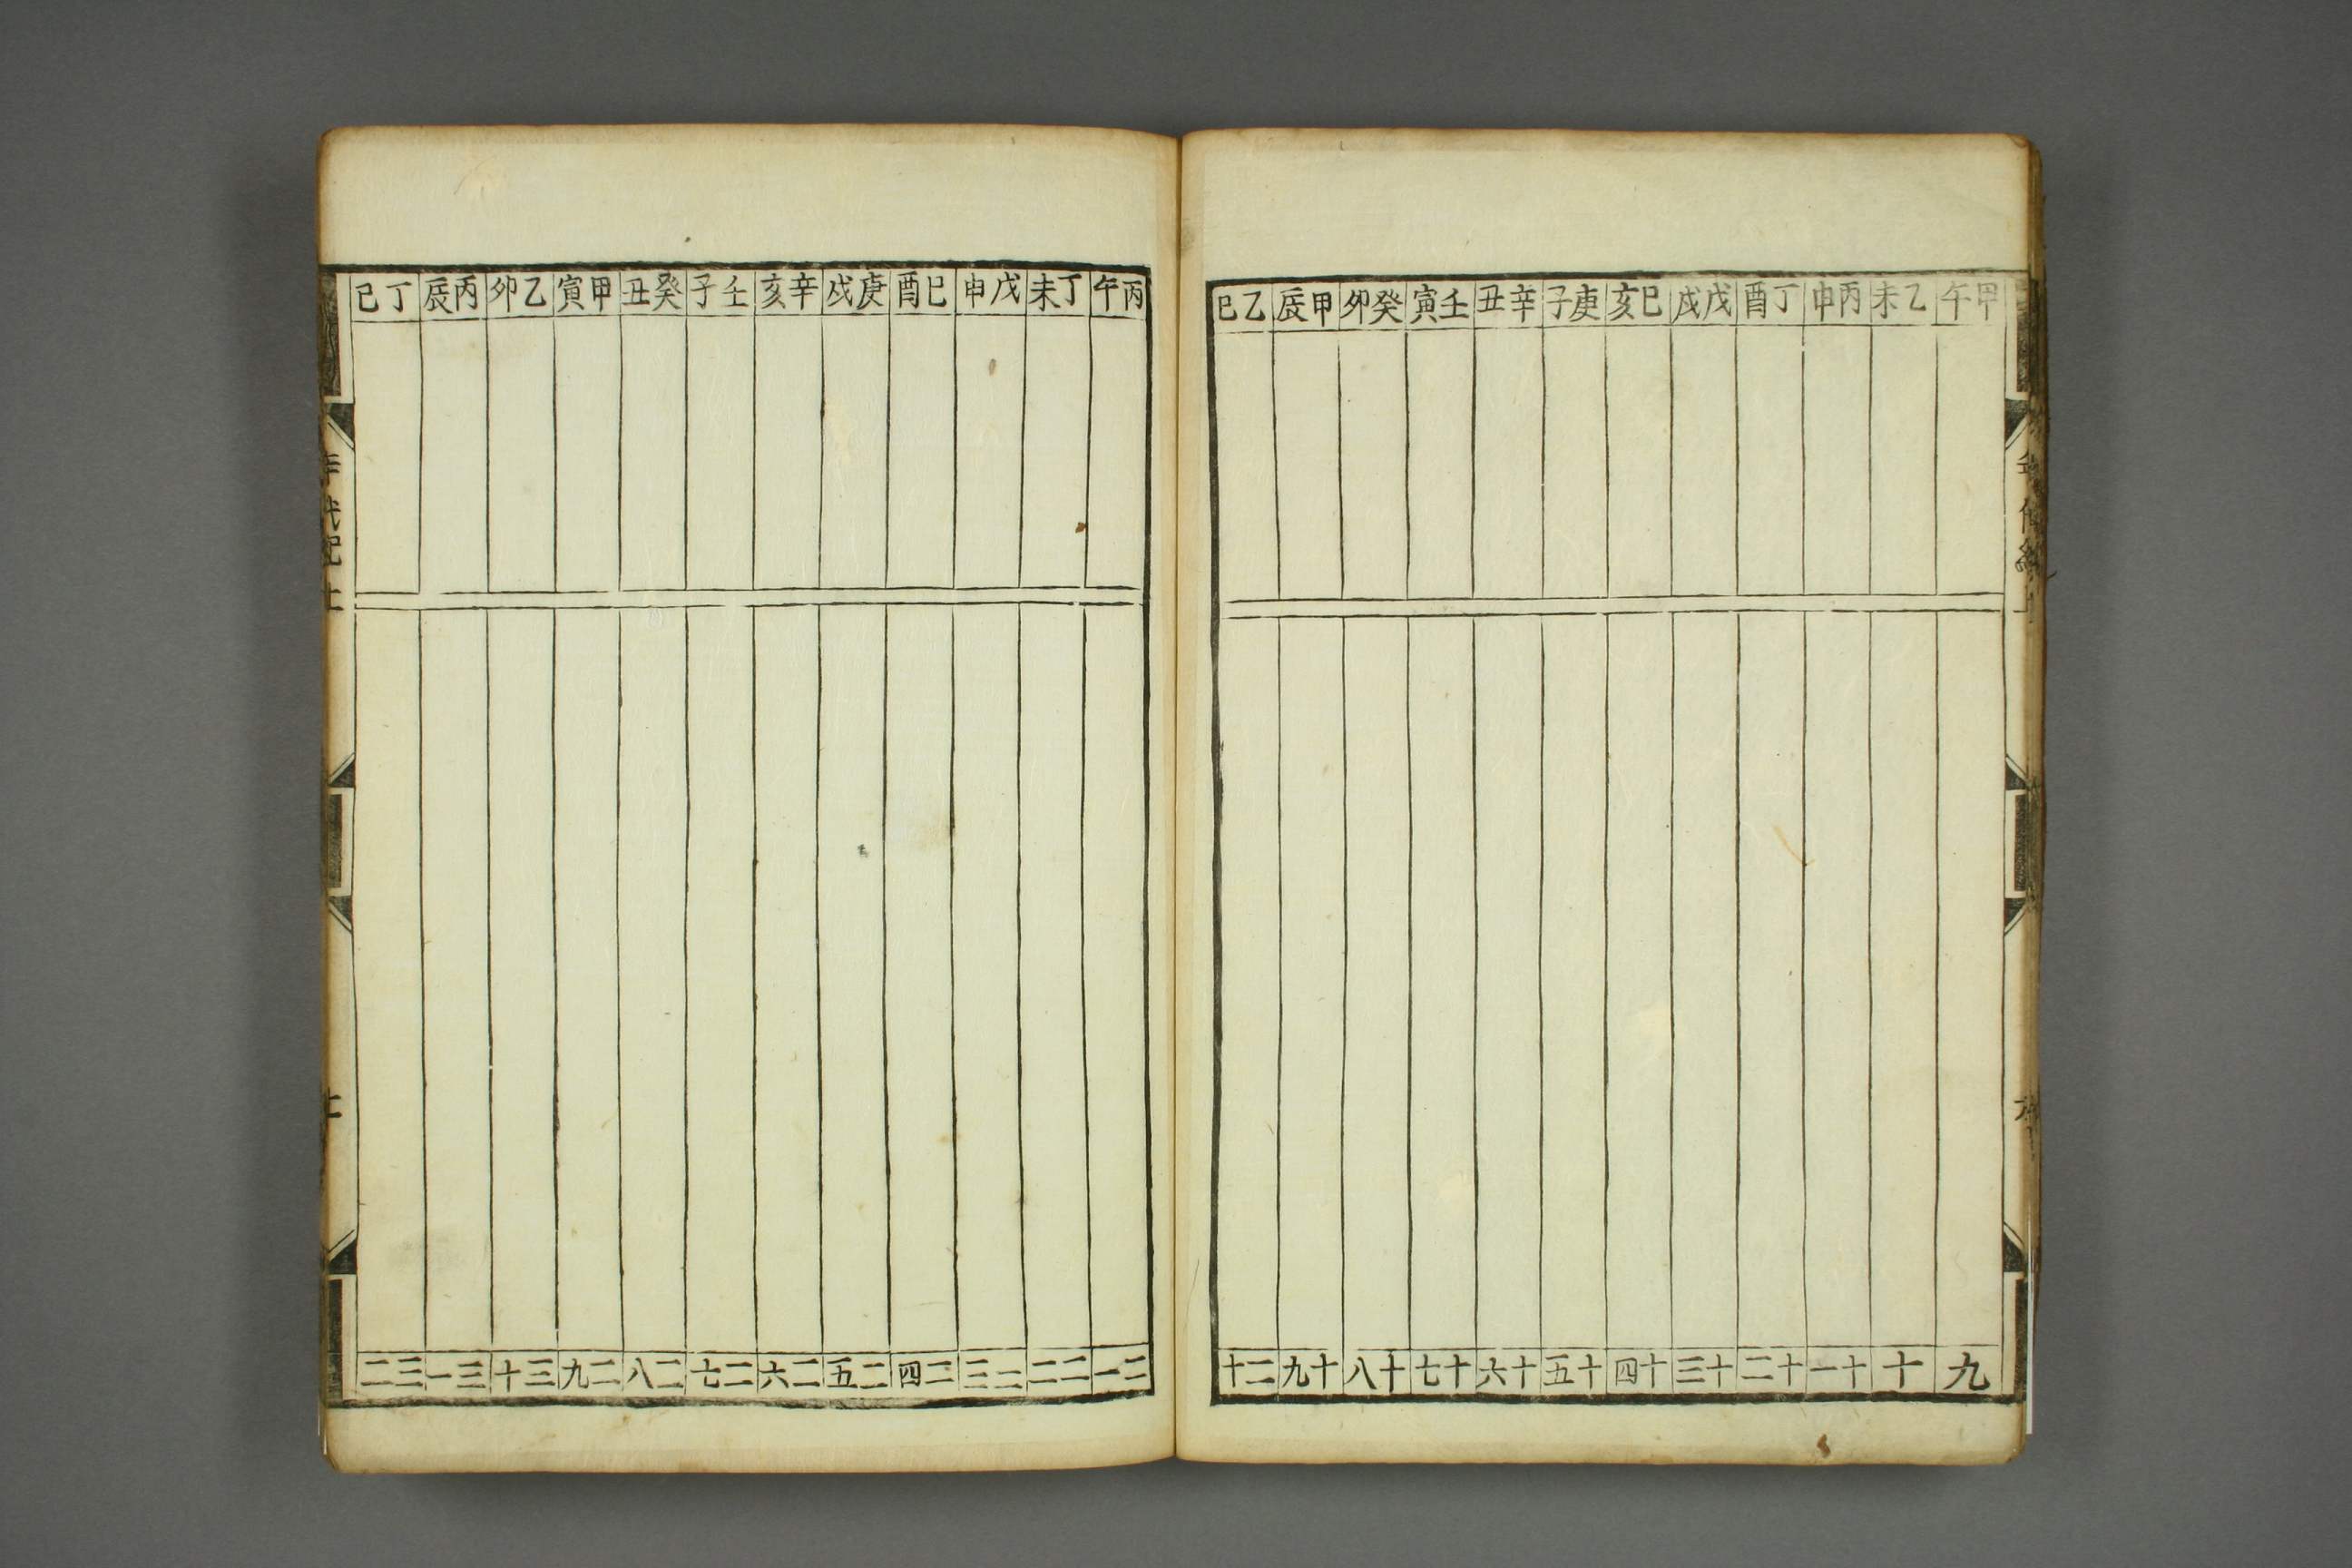 甲午
九
乙未
十
丙申
十一
丁酉
十二
戊戌
十三
己亥
十四
庚子
十五
辛丑
十六
壬寅
十七
癸卯
十八
甲辰
十九
乙巳
二十
丙午
二一
丁未
二二
戊申
二三
己酉
二四
庚戌
二五
辛亥
二六
壬子
二七
癸丑
二八
甲寅
二九
乙卯
三十
丙辰
三一
丁巳
三二
年代紀上